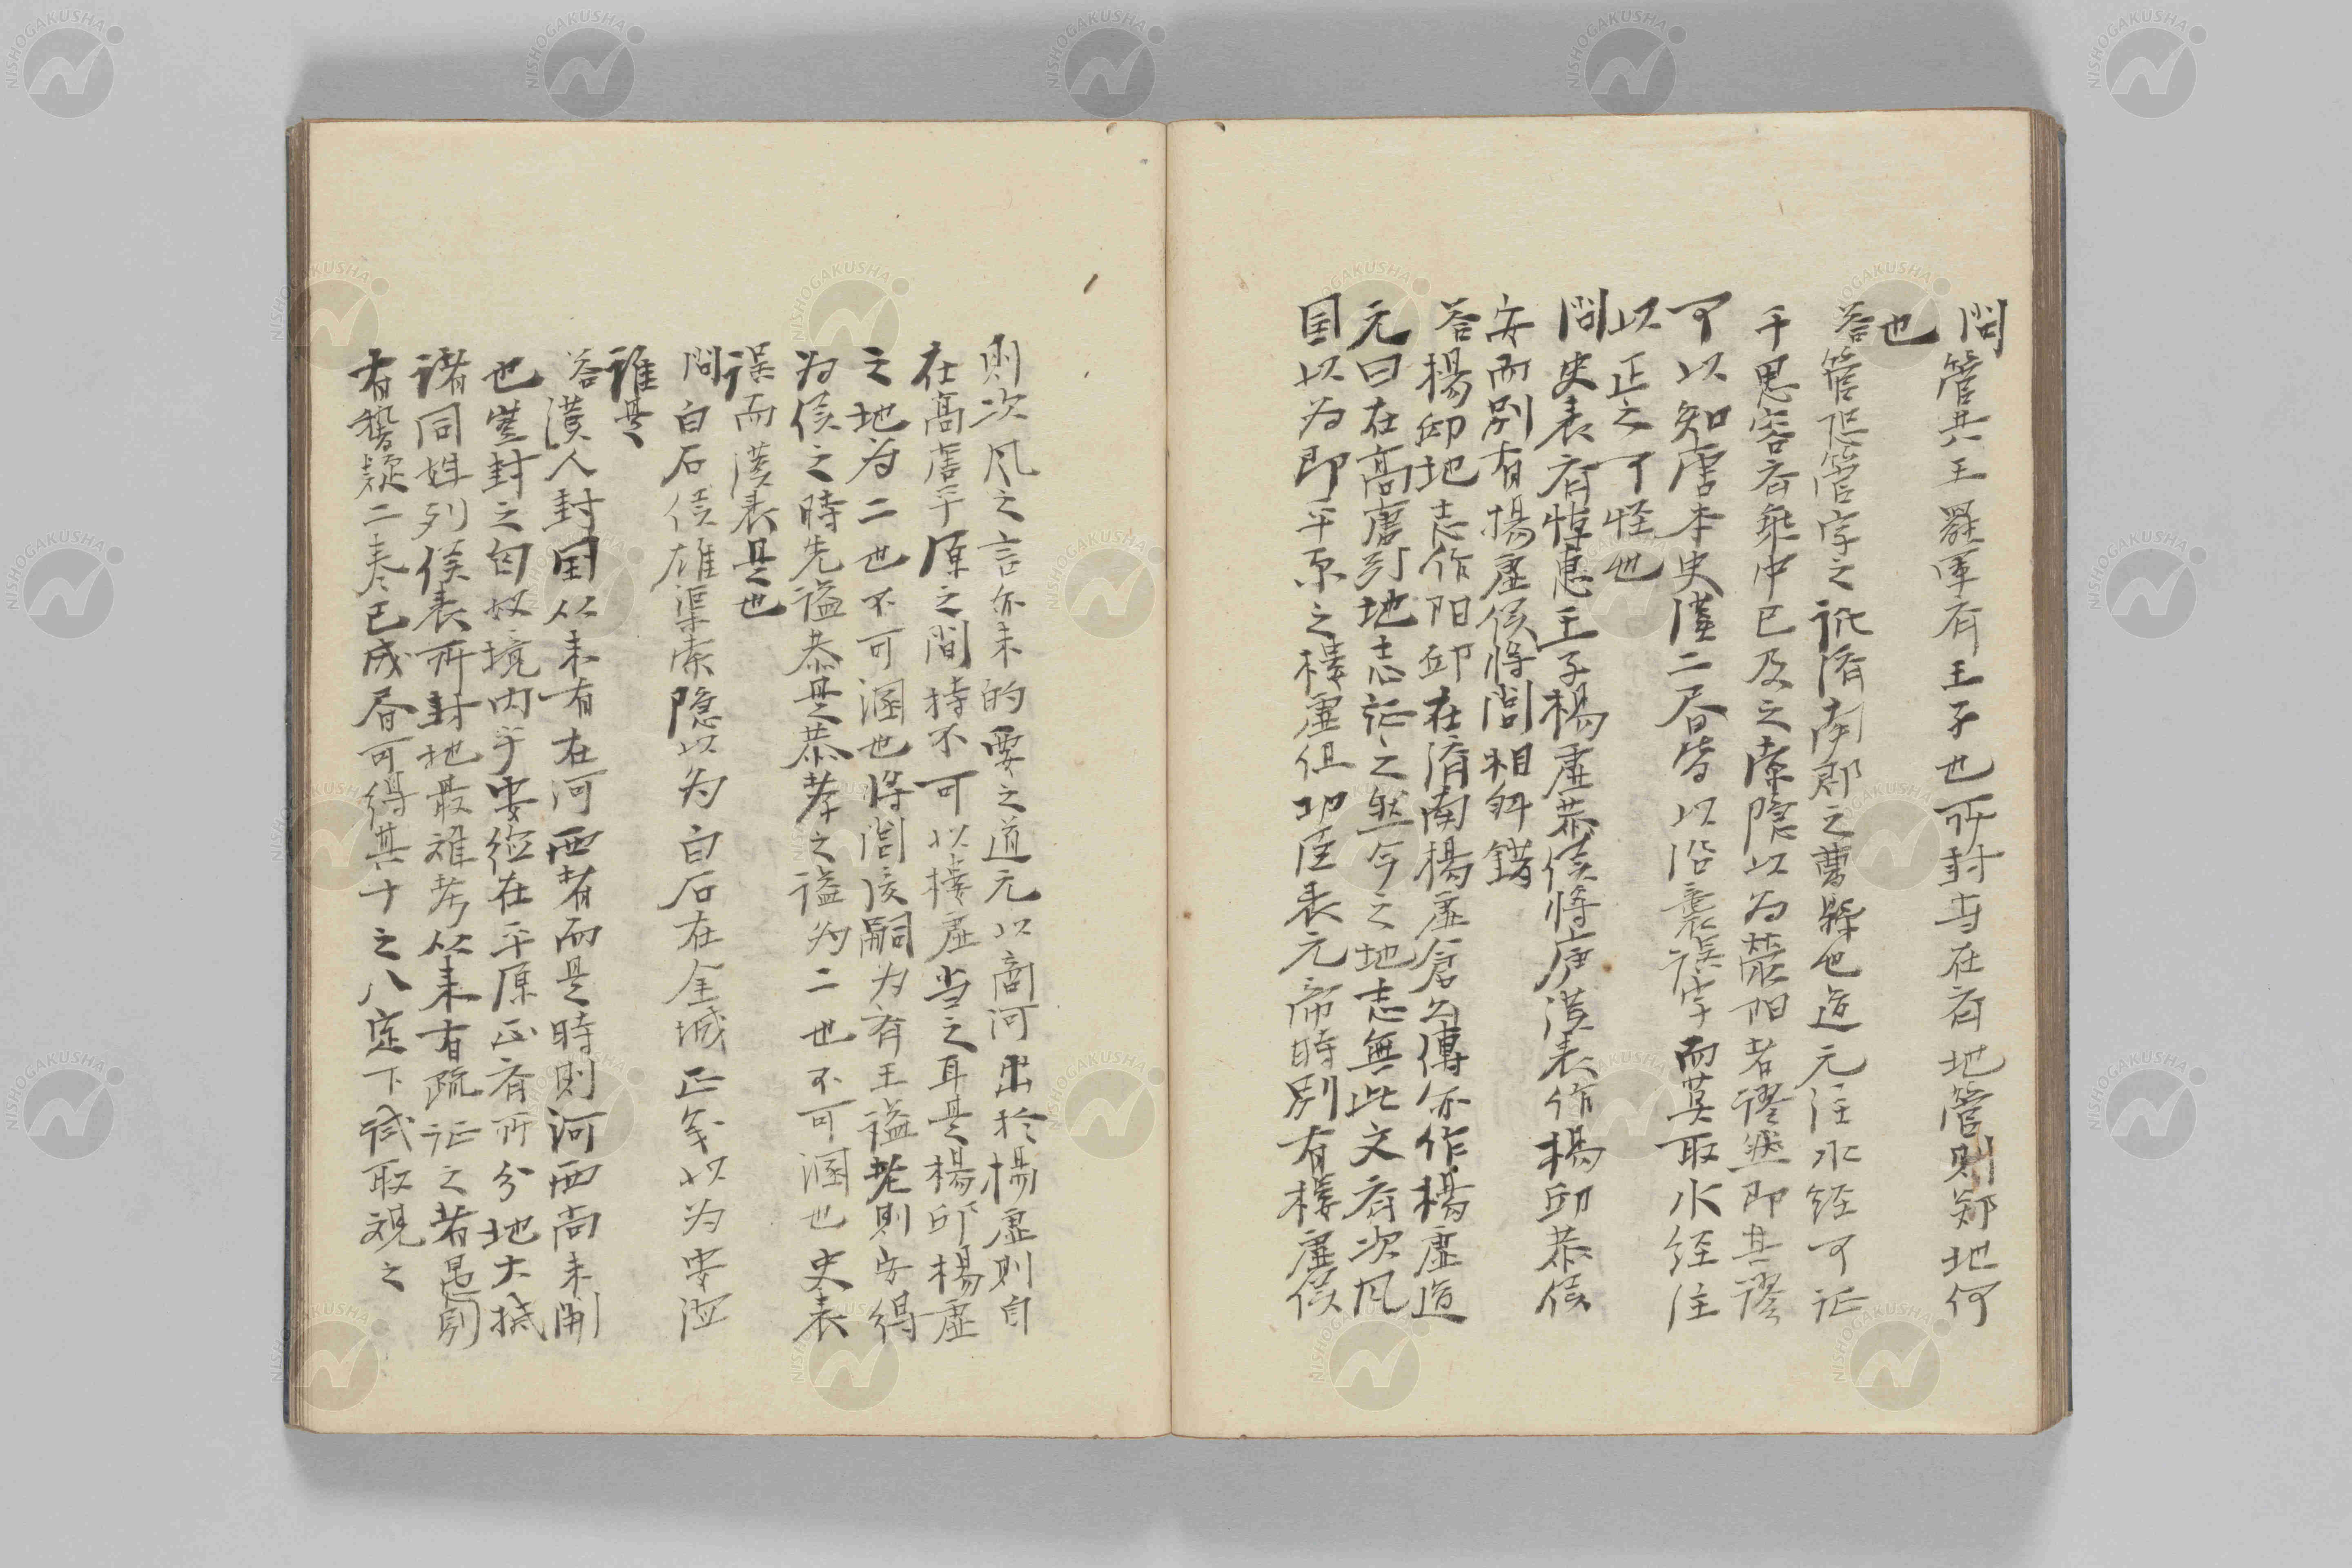 問管共王罷軍斉王子也所封当在斉地管則鄭地何
也
答管侣管字之訛済南郡之菅縣也道元注水経可証
千思容斉乗中已及之索隠以為滎阳者謬然即其謬
可以知唐本史漢二書皆以沿袭誤字而莫取水経注
以正之可怪也
問史表斉悼恵王子楊虚恭侯将庐漢表作楊邱恭侯
安而別有揚虚侯将閭相舛錯
答楊邱地志作阳邱在済南楊虚倉公傳亦作楊虚道
元曰在高唐引地志証之然今之地志無此文斉次风
国以为即平原之楼虚但功臣表元帝時別有楼虚侯
則次风之言亦未的要之道元以商河出於楊虚則自
在高唐平原之間特不可以楼虚当之耳是楊邱楊虚
之地为二也不可溷也将閭後嗣为斉王謚孝則安得
为侯之時先謚恭是恭孝之謚为二也不可溷也史表
误而漢表是也
問白石侯雄渠索隠以为白石在金城正義以为安德
誰是
答漢人封国从未有在河西者而是時則河西尚未開
也豈封之匈奴境内乎安德在平原正斉所分地大抵
諸同姓列侯表所封地最难考从来有疏証之者愚別
有稽疑二卷已成書可得其十之八定下試取観之